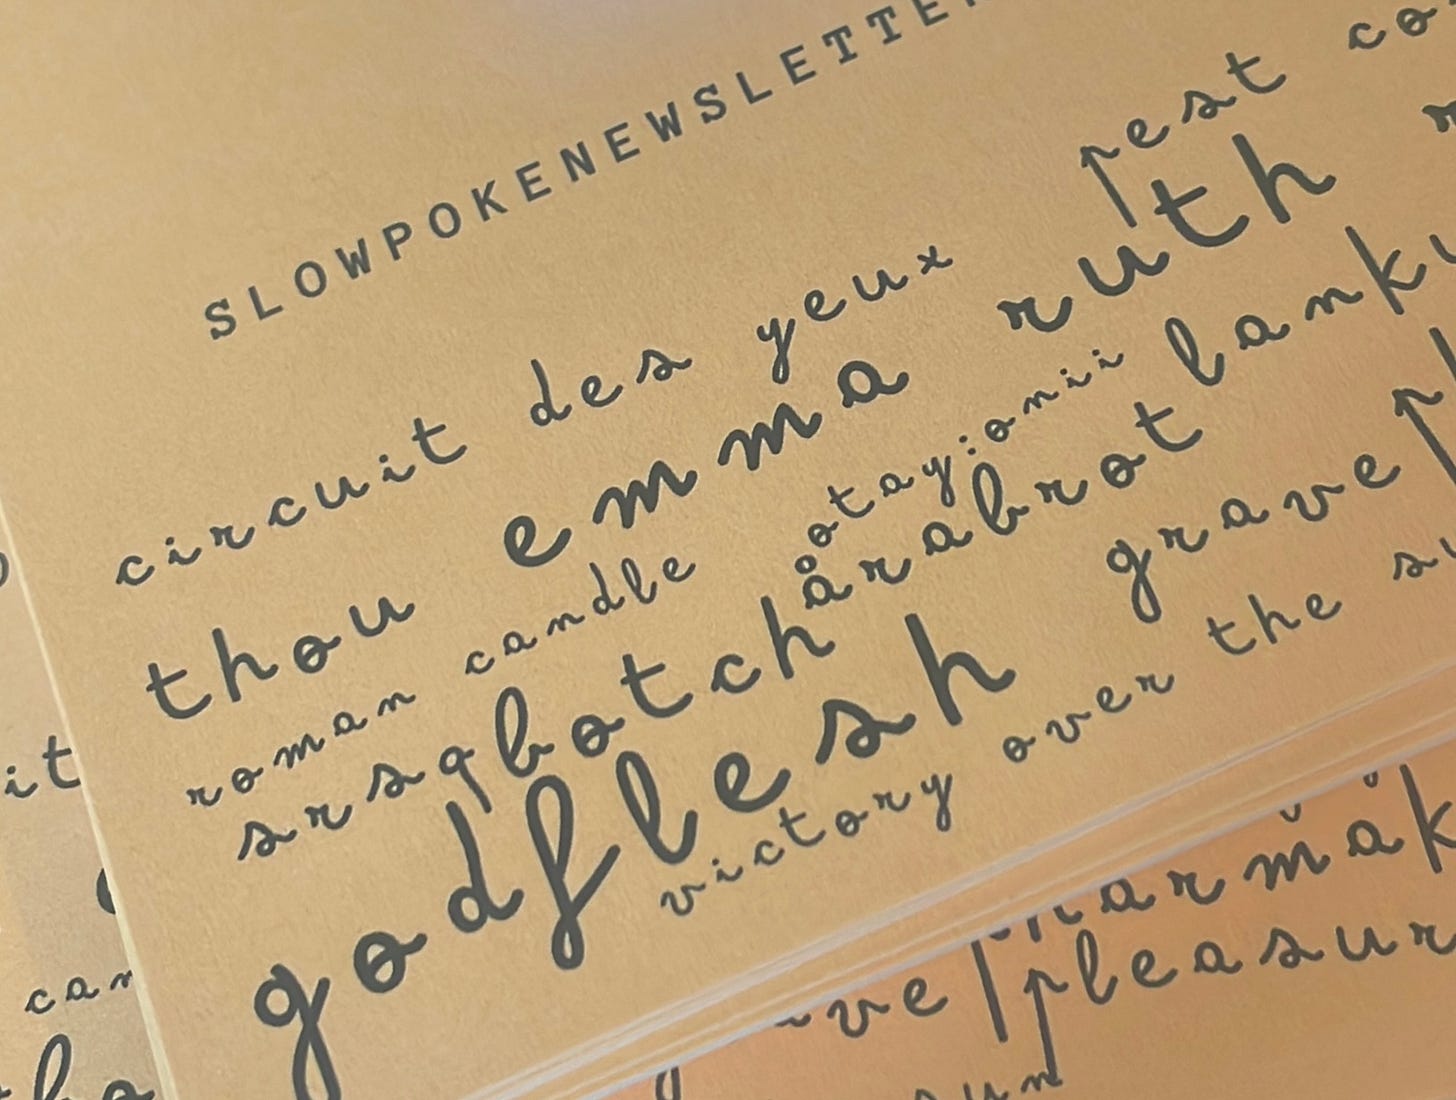 SLOWPOKENEWSLETTE
circuit des yeux pest co
thou emma ruth
roman candle otay:onii lanky
srsqbotch årabrot
godflesh grave
victory over the su
it
can
ve pharmak
pleasur
sun